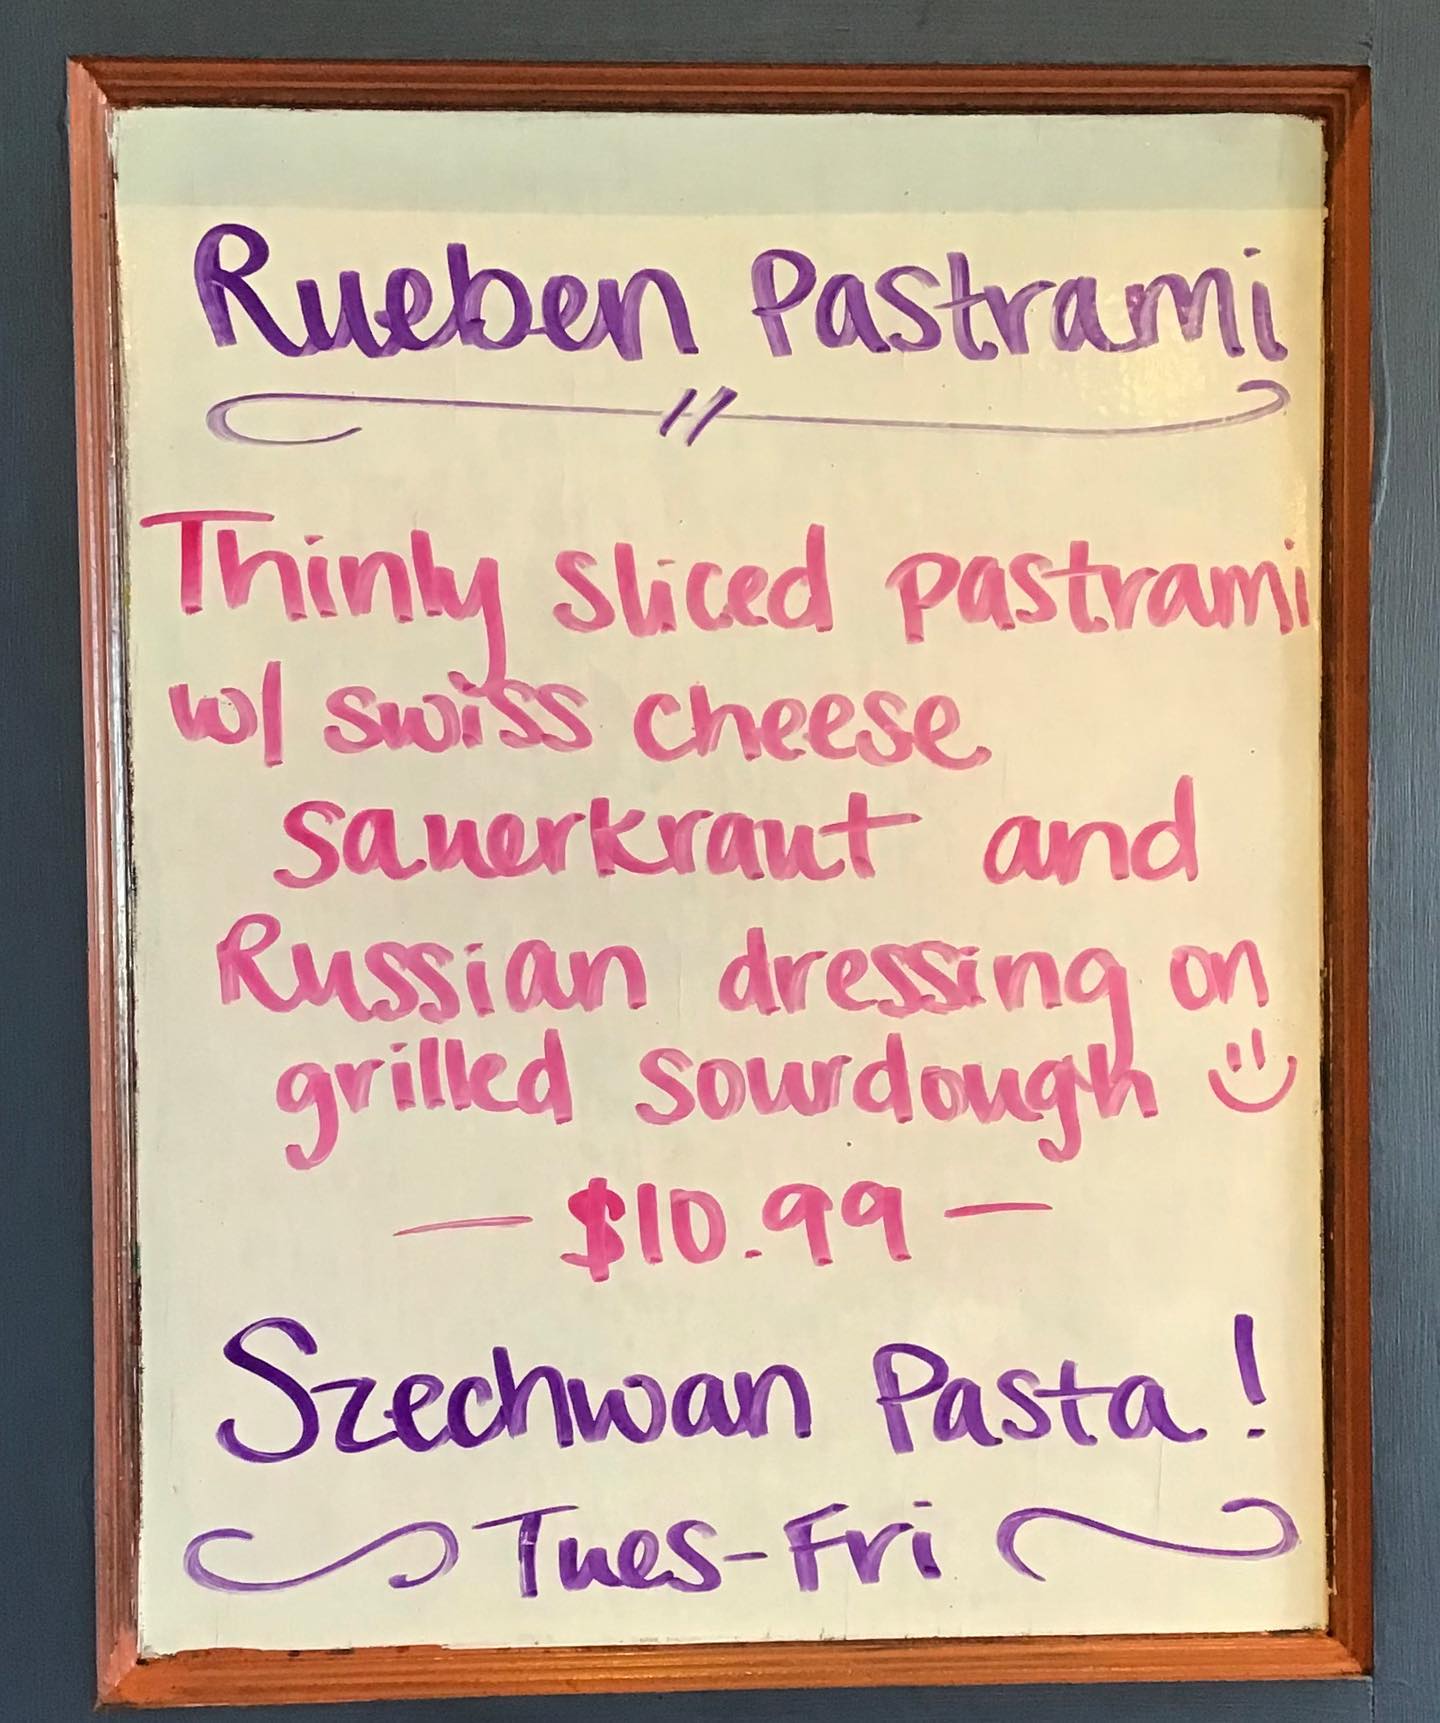 Rueben Pastrami
Thinly sliced pastrami
w/ swiss cheese
sauerkraut and
Russian dressing on
grilled sourdough
— $10.99 —
Szechwan Pasta!
Tues-Fri